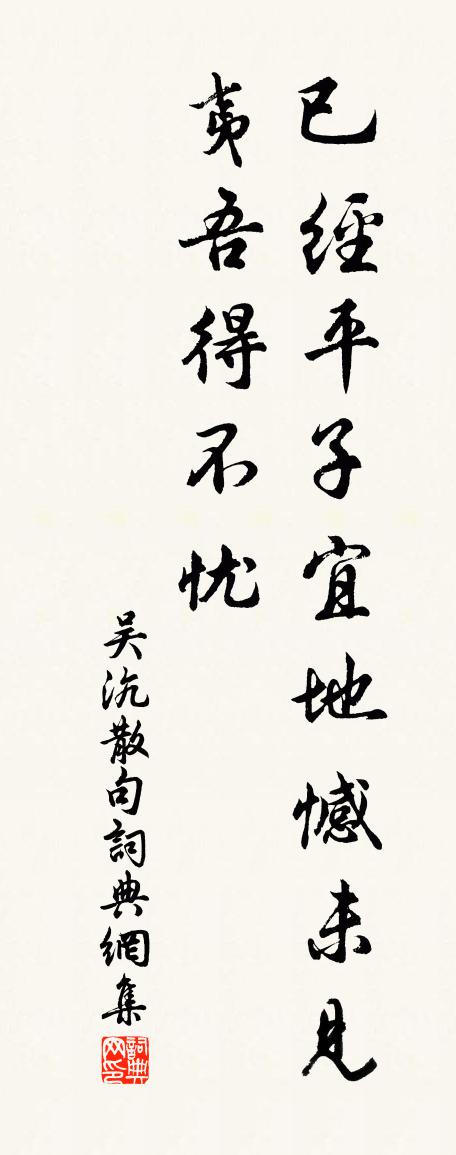 已經平子宜地憾未見
夷吾得不忧
吴沉散句詞典網集
詞典网印